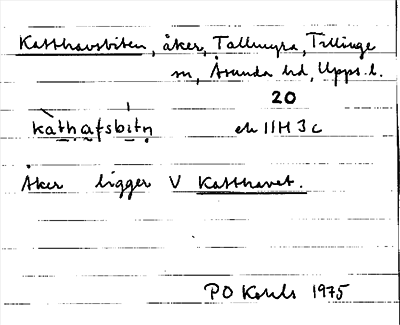 Katthavsbiten, åker, Tallmyra, Tillinge
sn, Åsunda hd, Upps. l.
20
kàthafsbı̍tn̥ ek 11H 3c
Åker ligger V Katthavet.
PO 1975